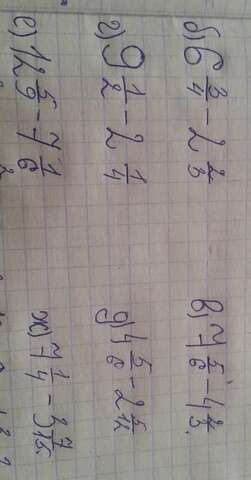 б) 6 3/4 - 2 2/3 в) 7 5/6 - 4 2/3.
г) 9 1/2 - 2 1/4 д) 4 5/6 - 2 5/12
е) 12 5/9 - 7 1/6 ж) 7 1/4 - 3 7/15